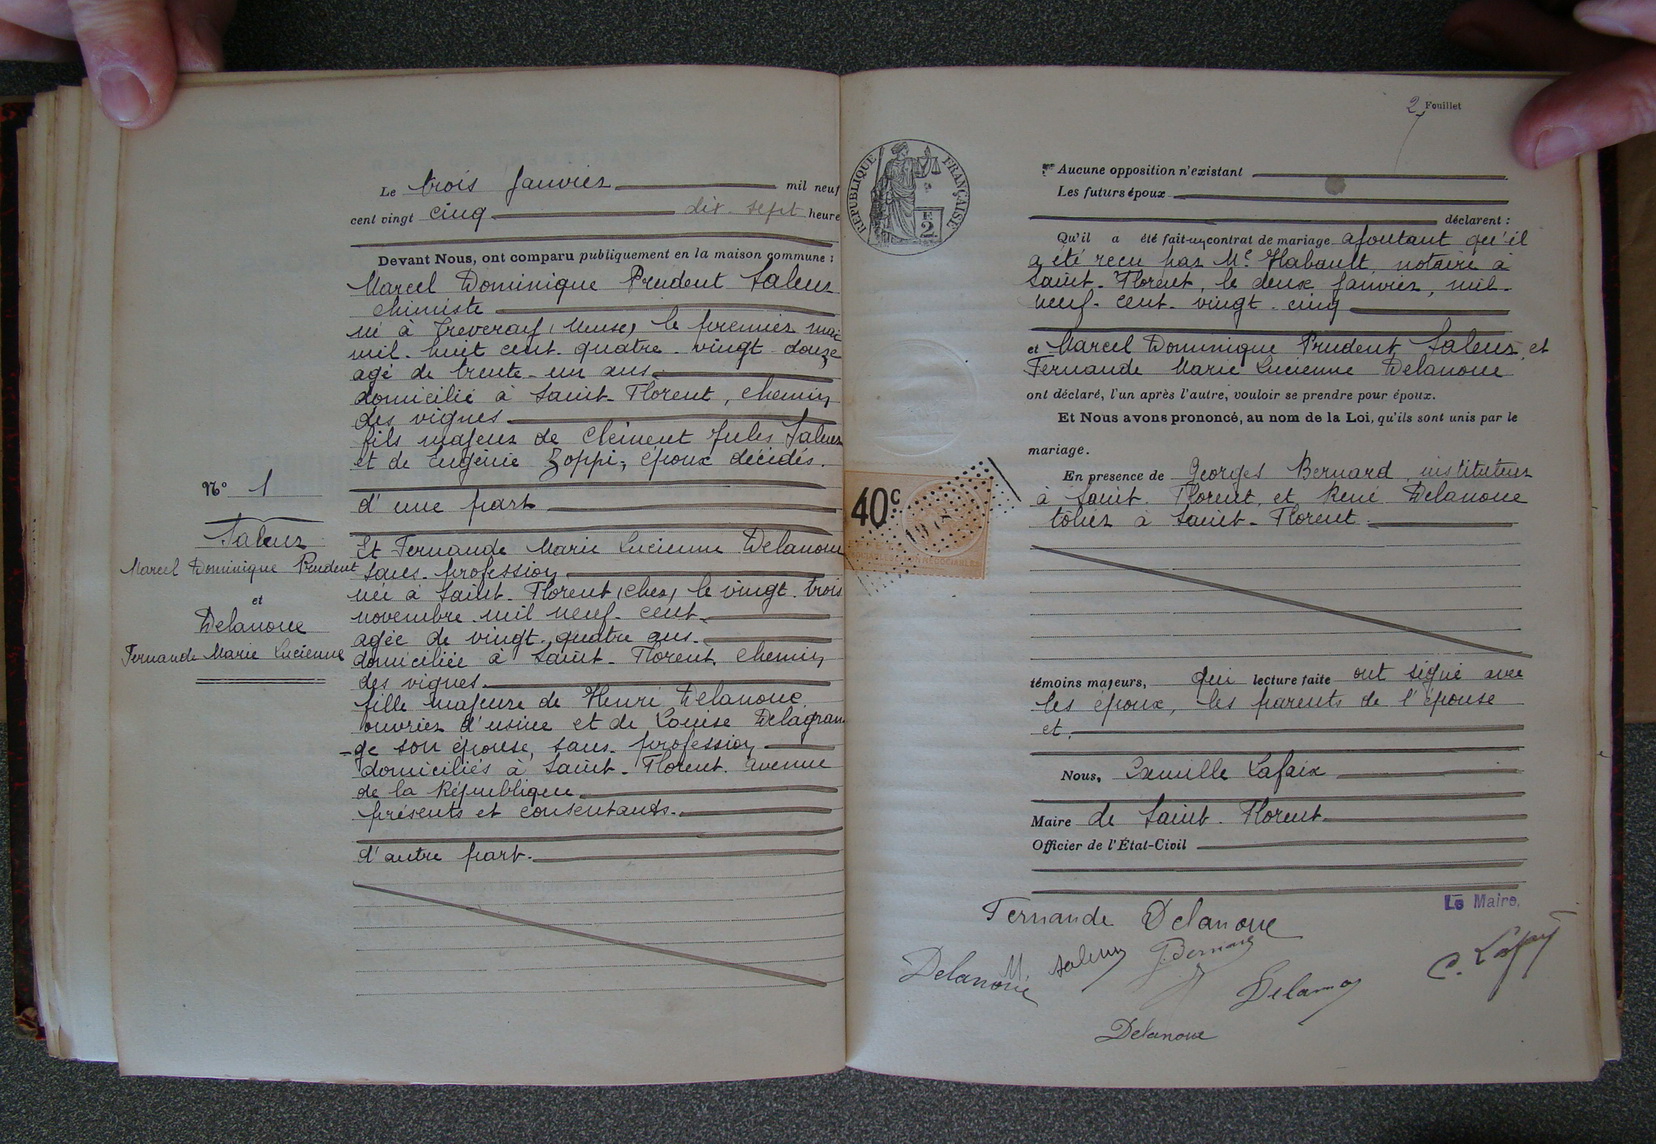 Le trois Janvier mil neuf
cent vingt cinq dix-sept heure
Devant Nous, ont comparu publiquement en la maison commune :
Marcel Dominique Prudent Saleur
chimiste
né à Tréveray (Meuse) le premier mai
mil-huit cent-quatre-vingt-douze
agé de trente-un ans
domicilié à Saint-Florent, chemin
des vignes
fils majeur de Clément Jules Saleur
et de Eugénie Zoppi, époux décédés.
d'une part
Et Fernande Marie Lucienne Delanoue
sans-profession
née à Saint-Florent (Cher) le vingt-trois
novembre mil neuf-cent
agée de vingt-quatre ans
domiciliée à Saint-Florent, chemin
des vignes
fille majeure de Henri Delanoue
ouvrier d'usine et de Louise Delagran
-ge son épouse, sans-profession
domiciliés à Saint-Florent avenue
de la République
présents et consentants.
d'autre part.
N° 1
Saleur
Marcel Dominique Prudent
et
Delanoue
Fernande Marie Lucienne
2 Feuillet
RÉPUBLIQUE FRANÇAISE
2
40c
Aucune opposition n'existant
Les futurs époux
déclarent :
Qu'il a été fait un contrat de mariage ajoutant qu'il
a été reçu par Me Habault, notaire à
Saint-Florent, le deux Janvier, mil-
neuf-cent-vingt-cinq
et Marcel Dominique Prudent Saleur et
Fernande Marie Lucienne Delanoue
ont déclaré, l'un après l'autre, vouloir se prendre pour époux.
Et Nous avons prononcé, au nom de la Loi, qu'ils sont unis par le
mariage.
En présence de Georges Bernard instituteur
à Saint-Florent, et René Delanoue
tôlier à Saint-Florent
témoins majeurs, qui lecture faite ont signé avec
les époux, les parents de l'épouse
et
Nous, Camille Lafaix
Maire de Saint-Florent
Officier de l'État-Civil
Le Maire,
Fernande Delanoue
Delanoue M. Saleur G. Bernard
Delanoue C. Lafaix
Delanoue